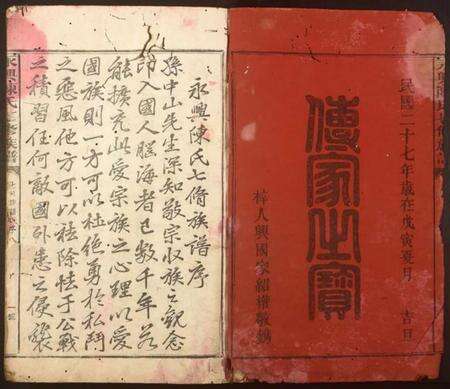 民國二十七年歲在戊寅夏月 吉日
傳家之寶
梓人興國家紹權敬鐫
永興陳氏七脩族譜序
孫中山先生深知敬宗收族之觀念
印入國人腦海者已數千年若
能擴充此愛宗族之心理以愛
國族則一方可以杜絕勇於私鬥
之惡風他方可以祛除怯于公戰
之積習任何敵國外患不足侵襲